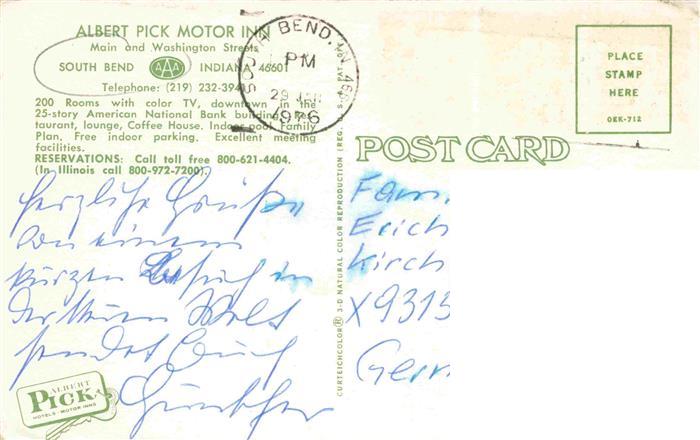 ALBERT PICK MOTOR INN
Main and Washington Streets
SOUTH BEND AAA INDIANA 46601
Telephone: (219) 232-394
200 Rooms with color TV, downtown in the
25-story American National Bank building. Res-
taurant, lounge, Coffee House. Indoor pool. Family
Plan. Free indoor parking. Excellent meeting
facilities.
RESERVATIONS: Call toll free 800-621-4404.
(In Illinois call 800-972-7200).
SOUTH BEND, IN 466
PM
29
1976
PLACE
STAMP
HERE
OEK-712
POST CARD
CURTEICHCOLOR® 3-D NATURAL COLOR REPRODUCTION (REG. U.S. PAT. OFF.)
Herzliche Grüße
von einem
kurzen Besuch in
der Neuen Welt
sendet Euch
Günther
Fam.
Erich
Kirch
X9313
Germ
ALBERT
PICK
HOTELS·MOTOR INNS